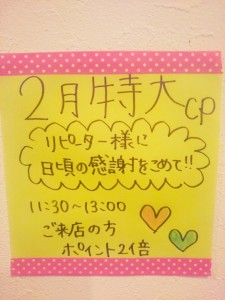 2月特大cp
リピーター様に
日頃の感謝をこめて!!
11:30~13:00
ご来店の方
ポイント2倍